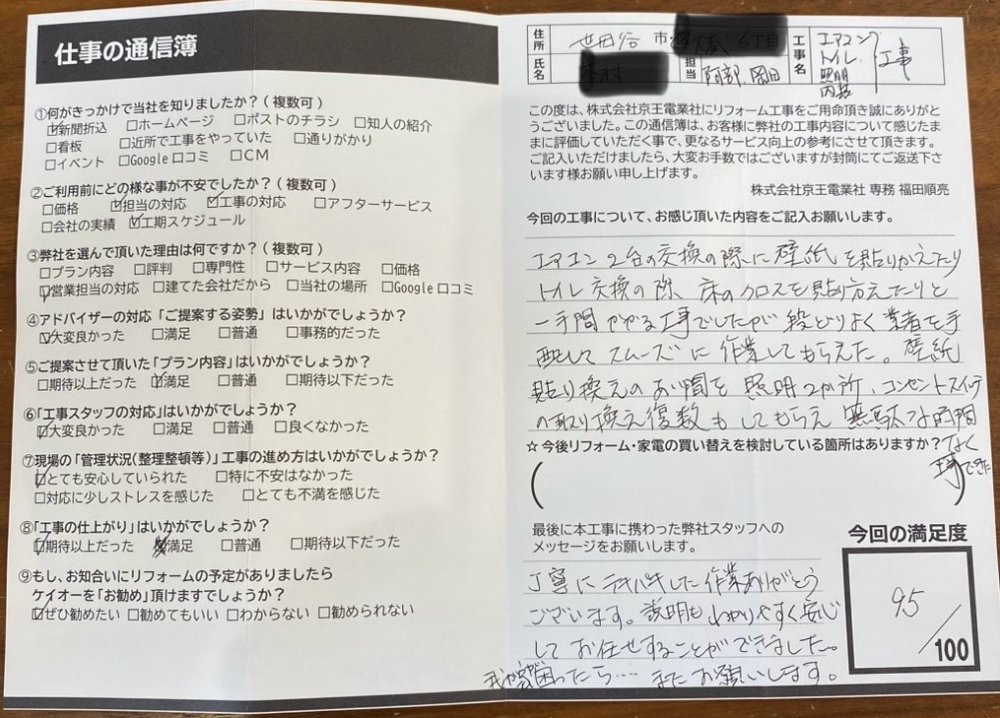 仕事の通信簿
①何がきっかけで当社を知りましたか？（複数可）
☑新聞折込 □ホームページ □ポストのチラシ □知人の紹介
□看板 □近所で工事をやっていた □通りがかり
□イベント □Google口コミ □CM
②ご利用前にどの様な事が不安でしたか？（複数可）
□価格 ☑担当の対応 ☑工事の対応 □アフターサービス
□会社の実績 ☑工期スケジュール
③弊社を選んで頂いた理由は何ですか？（複数可）
□プラン内容 □評判 □専門性 □サービス内容 □価格
☑営業担当の対応 □建てた会社だから □当社の場所 □Google口コミ
④アドバイザーの対応「ご提案する姿勢」はいかがでしょうか？
☑大変良かった □満足 □普通 □事務的だった
⑤ご提案させて頂いた「プラン内容」はいかがでしょうか？
□期待以上だった ☑満足 □普通 □期待以下だった
⑥「工事スタッフの対応」はいかがでしょうか？
☑大変良かった □満足 □普通 □良くなかった
⑦現場の「管理状況（整理整頓等）」工事の進め方はいかがでしょうか？
☑とても安心していられた □特に不安はなかった
□対応に少しストレスを感じた □とても不満を感じた
⑧「工事の仕上がり」はいかがでしょうか？
☑期待以上だった 満足 □普通 □期待以下だった
⑨もし、お知合いにリフォームの予定がありましたら
ケイオーを「お勧め」頂けますでしょうか？
☑ぜひ勧めたい □勧めてもいい □わからない □勧められない
住所 世田谷 市 6丁目
氏名 担当 阿部、岡田
工事名 エアコン トイレ 照明 内装 工事
この度は、株式会社京王電業社にリフォーム工事をご用命頂き誠にありがと
うございました。この通信簿は、お客様に弊社の工事内容について感じたまま
に評価していただく事で、更なるサービス向上の参考にさせて頂きます。
ご記入いただけましたら、大変お手数ではございますが封筒にてご返送下さ
います様お願い申し上げます。
株式会社京王電業社 専務 福田順亮
今回の工事について、お感じ頂いた内容をご記入お願いします。
エアコン2台の交換の際に壁紙を貼りかえたり
トイレ交換の際、床のクロスを貼り方えたりと
一手間かかる工事でしたが段どりよく業者を手
配して スムーズに作業してもらえた。壁紙
貼り換えのあい間を照明2か所、コンセントスイッチ
の取り換え複数もしてもらえ無駄な時間
☆今後リフォーム・家電の買い替えを検討している箇所はありますか？
なく
できた
最後に本工事に携わった弊社スタッフへの
メッセージをお願いします。
丁寧にテキパキした作業ありがとう
ございます。説明もわかりやすく安心
してお任せすることができました。
我が家が困ったら…… またお願いします。
今回の満足度
95/100